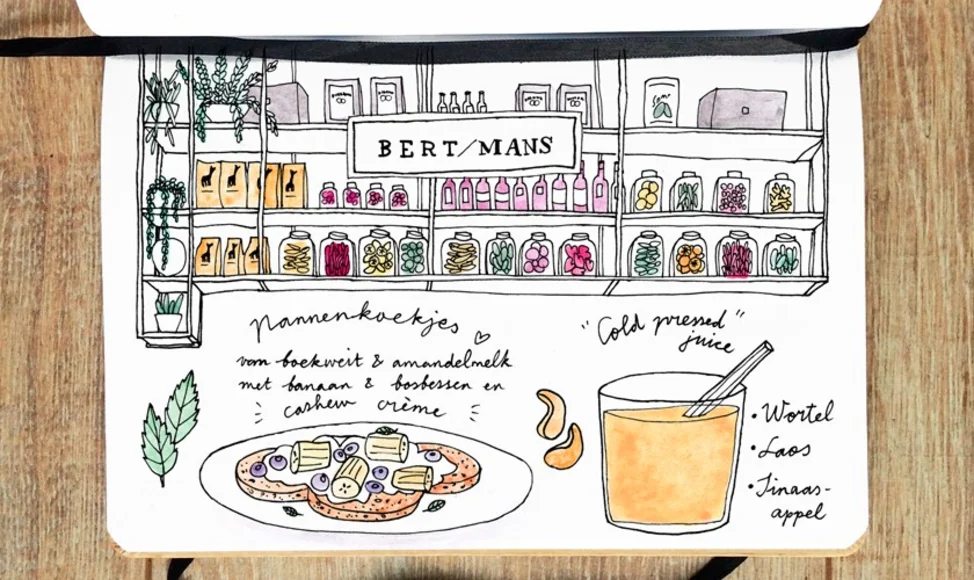 BERT/MANS
pannenkoekjes
van boekweit & amandelmelk
met banaan & bosbessen en
cashew crème
"Cold pressed"
juice
• Wortel
• Laos
• Sinaas-
appel